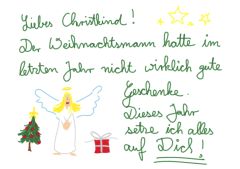 Liebes Christkind !
Der Weihnachtsmann hatte im
letzten Jahr nicht wirklich gute
Geschenke.
Dieses Jahr
setze ich alles
auf Dich !